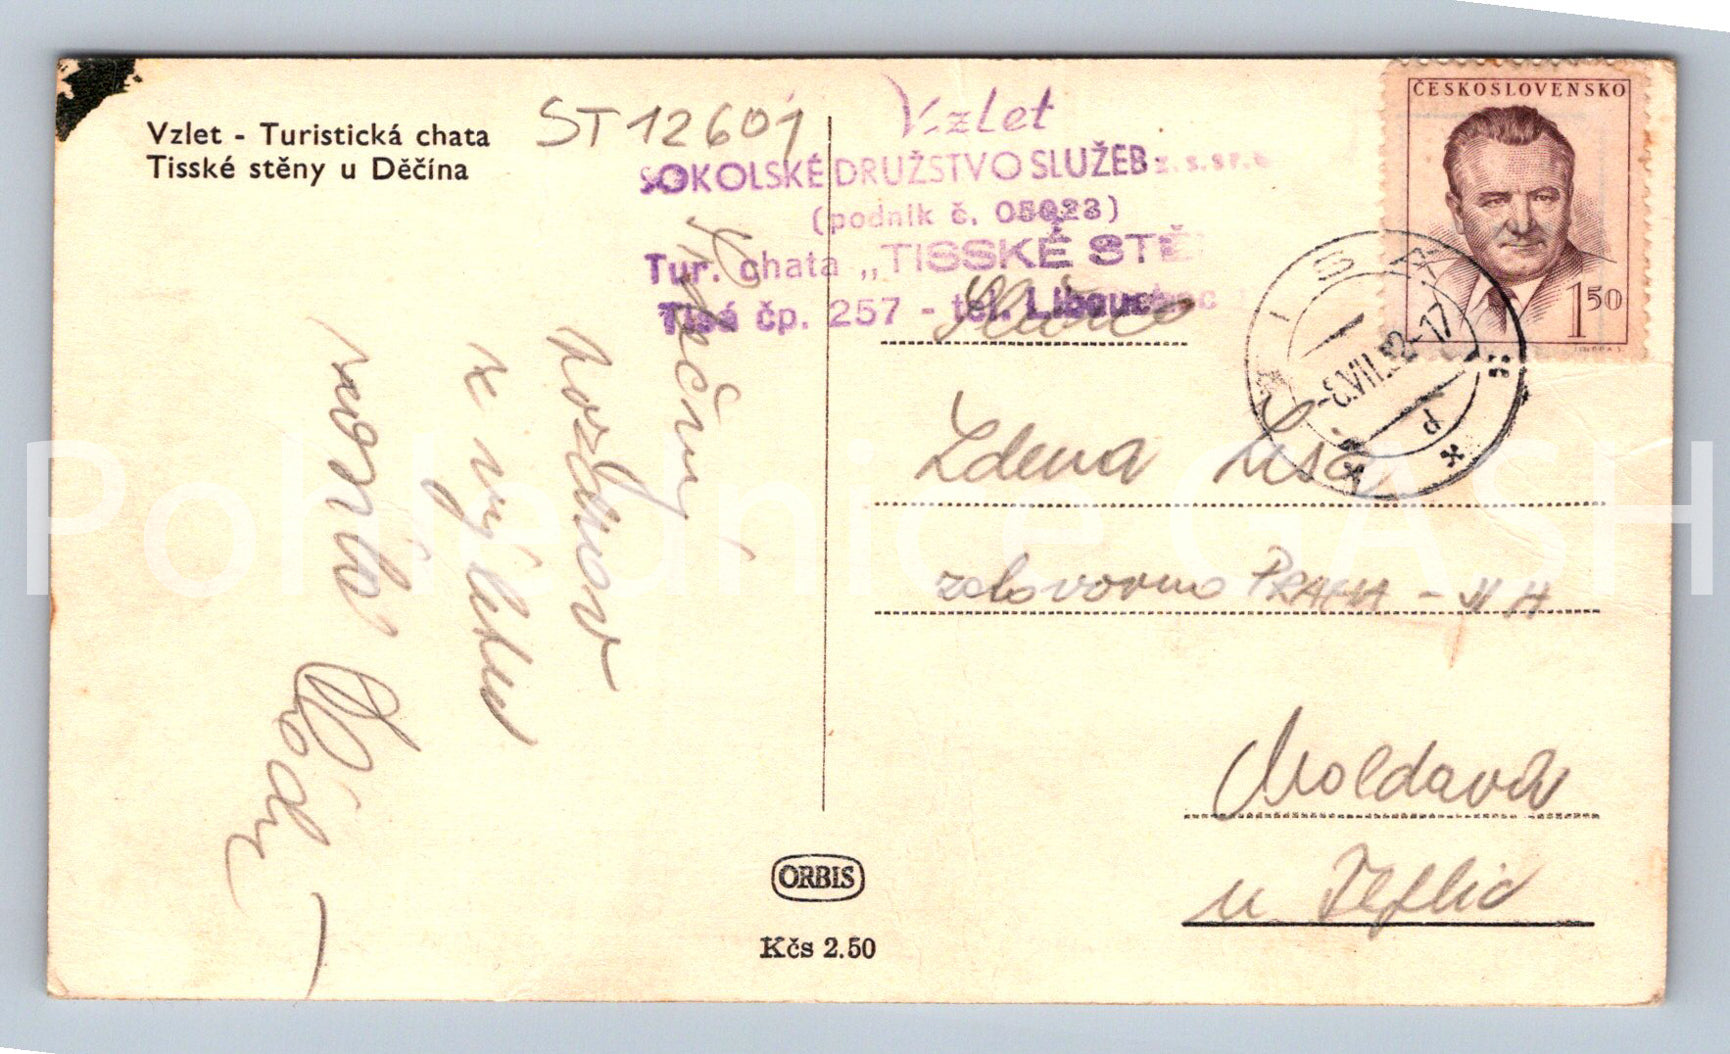 Vzlet - Turistická chata
Tisské stěny u Děčína
ST 12601
Vzlet
SOKOLSKÉ DRUŽSTVO SLUŽEB z. s. sr. o
(podnik č. 05023)
Tur. chata „TISSKÉ STĚ
Tisá čp. 257 - tel. Libouchec
ČESKOSLOVENSKO
1 50
TISÁ
-8.VII.52-17
d
Srdečný
pozdrav
z výletu
Slečna
Zdena
zotavovna PRAHA -
Moldava
u Teplic
ORBIS
Kčs 2.50
Pohlednice GASH